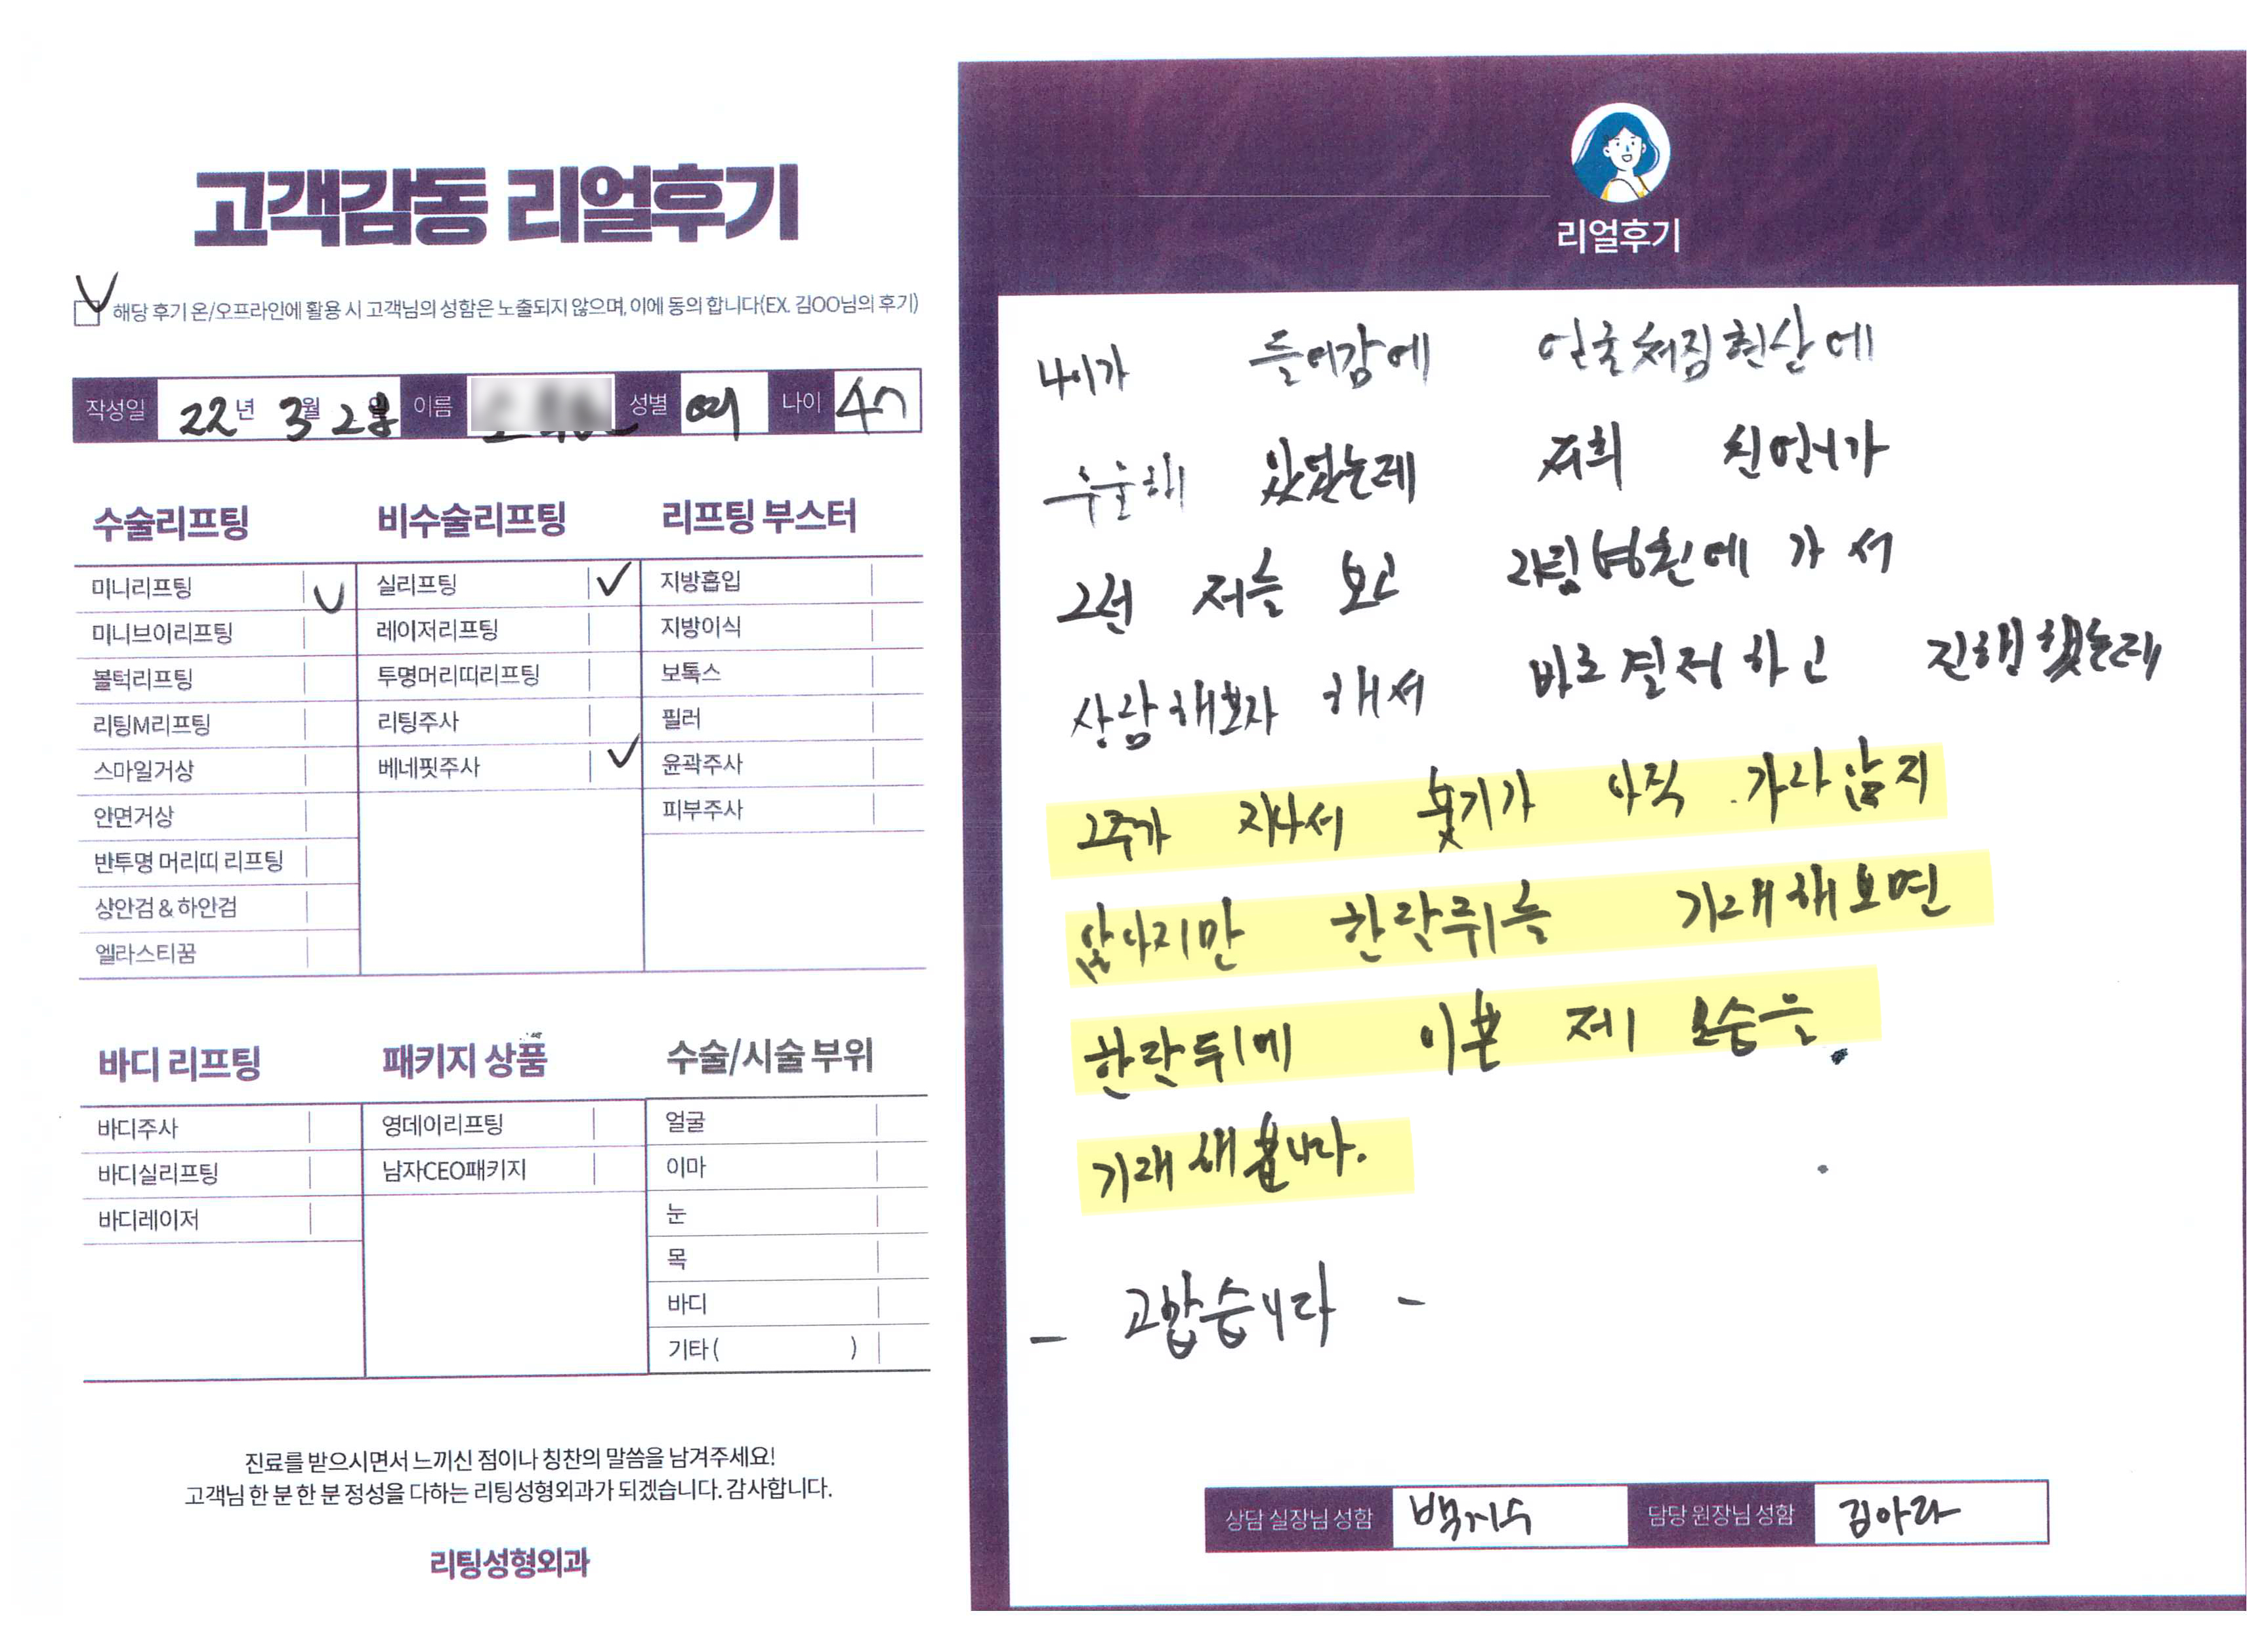 고객감동 리얼후기
해당 후기 온/오프라인에 활용 시 고객님의 성함은 노출되지 않으며, 이에 동의 합니다(EX. 김OO님의 후기)
작성일 22년 3월 2일 이름 성별 여 나이 47
수술리프팅
미니리프팅
미니브이리프팅
볼턱리프팅
리팅M리프팅
스마일거상
안면거상
반투명 머리띠 리프팅
상안검 & 하안검
엘라스티꿈
비수술리프팅
실리프팅
레이저리프팅
투명머리띠리프팅
리팅주사
베네핏주사
리프팅 부스터
지방흡입
지방이식
보톡스
필러
윤곽주사
피부주사
바디 리프팅
바디주사
바디실리프팅
바디레이저
패키지 상품
영데이리프팅
남자CEO패키지
수술/시술 부위
얼굴
이마
눈
목
바디
기타 ( )
진료를 받으시면서 느끼신 점이나 칭찬의 말씀을 남겨주세요!
고객님 한 분 한 분 정성을 다하는 리팅성형외과가 되겠습니다. 감사합니다.
리팅성형외과
리얼후기
나이가 들어감에 얼굴처짐현상에
수술해 있었는데 저희 친언니가
그런 저를 보고 리팅병원에 가서
상담해보자 해서 바로결정하고 진행했는데
2주가 지나서 붓기가 아직 가라앉지
않아지만 한달뒤를 기대해보면
한달뒤에 이쁜 제 모습을
기대해봅니다.
- 고맙습니다 -
상담 실장님 성함 백지수 담당 원장님 성함 김아라